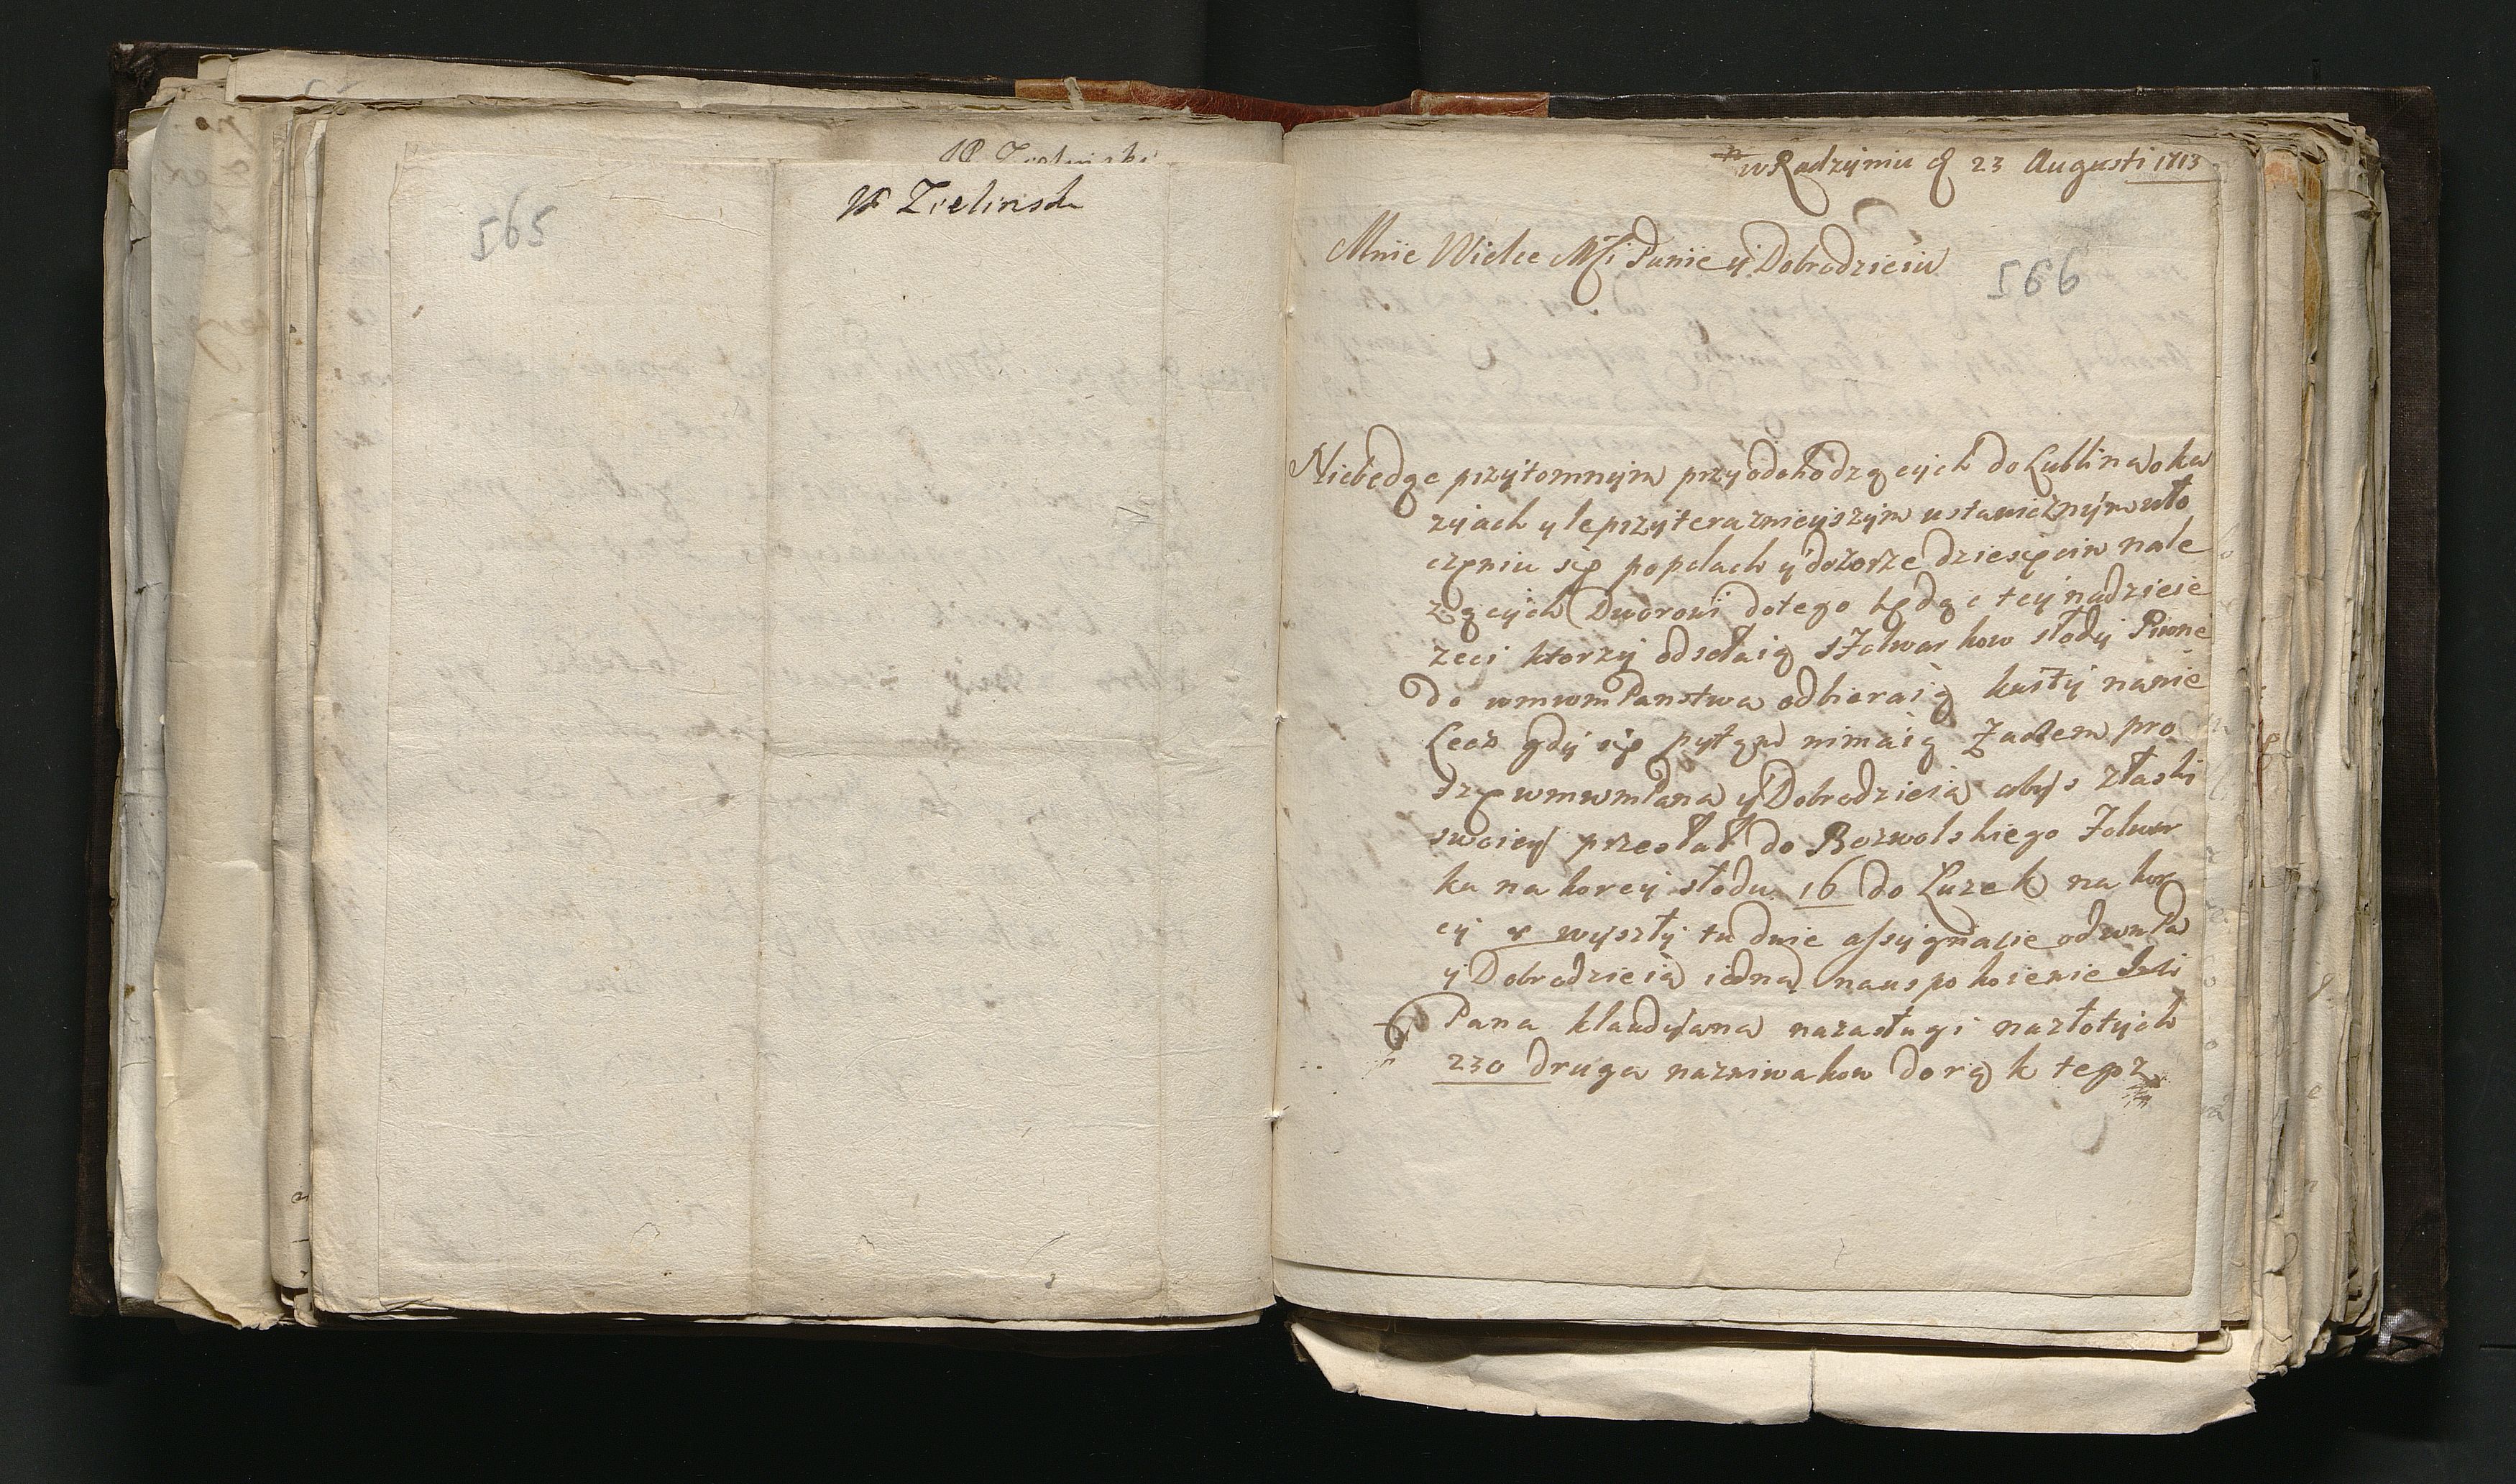 W Zielinski
565
W Zielinsk
w Radzyniu d 23 Augusti 1713
Mnie Wielce Mści Panie y Dobrodzieiu
566
Niebędąc przytomnym przyodchodzących do Lublina oka
zyiach y le przyteraznieyszym ustawicznym wło
czeniu się popolach y dozorze dziesięcin nale
żących Dworowi dotego będąc tey nadzieie
zeci ktorzy odsełaią sFolwarkow słody Piwne
do wmwmPanstwa odbieraią kwity nanie
Lecz gdy się pytam nimaią Zaczem pro
szę wmwmPana y Dobrodzieia abys złaski
swoiey przesłał do Bezwolskiego Folwar
ku na korcy słodu 16 do Luzek na kor
cy wyszły tu dwie assygnacie odwmPa
y Dobrodzieia iedna nauspokoienie
Pana klaudyana nazasługi nazłotych
230 druga nazniwakow dorąk tegoz